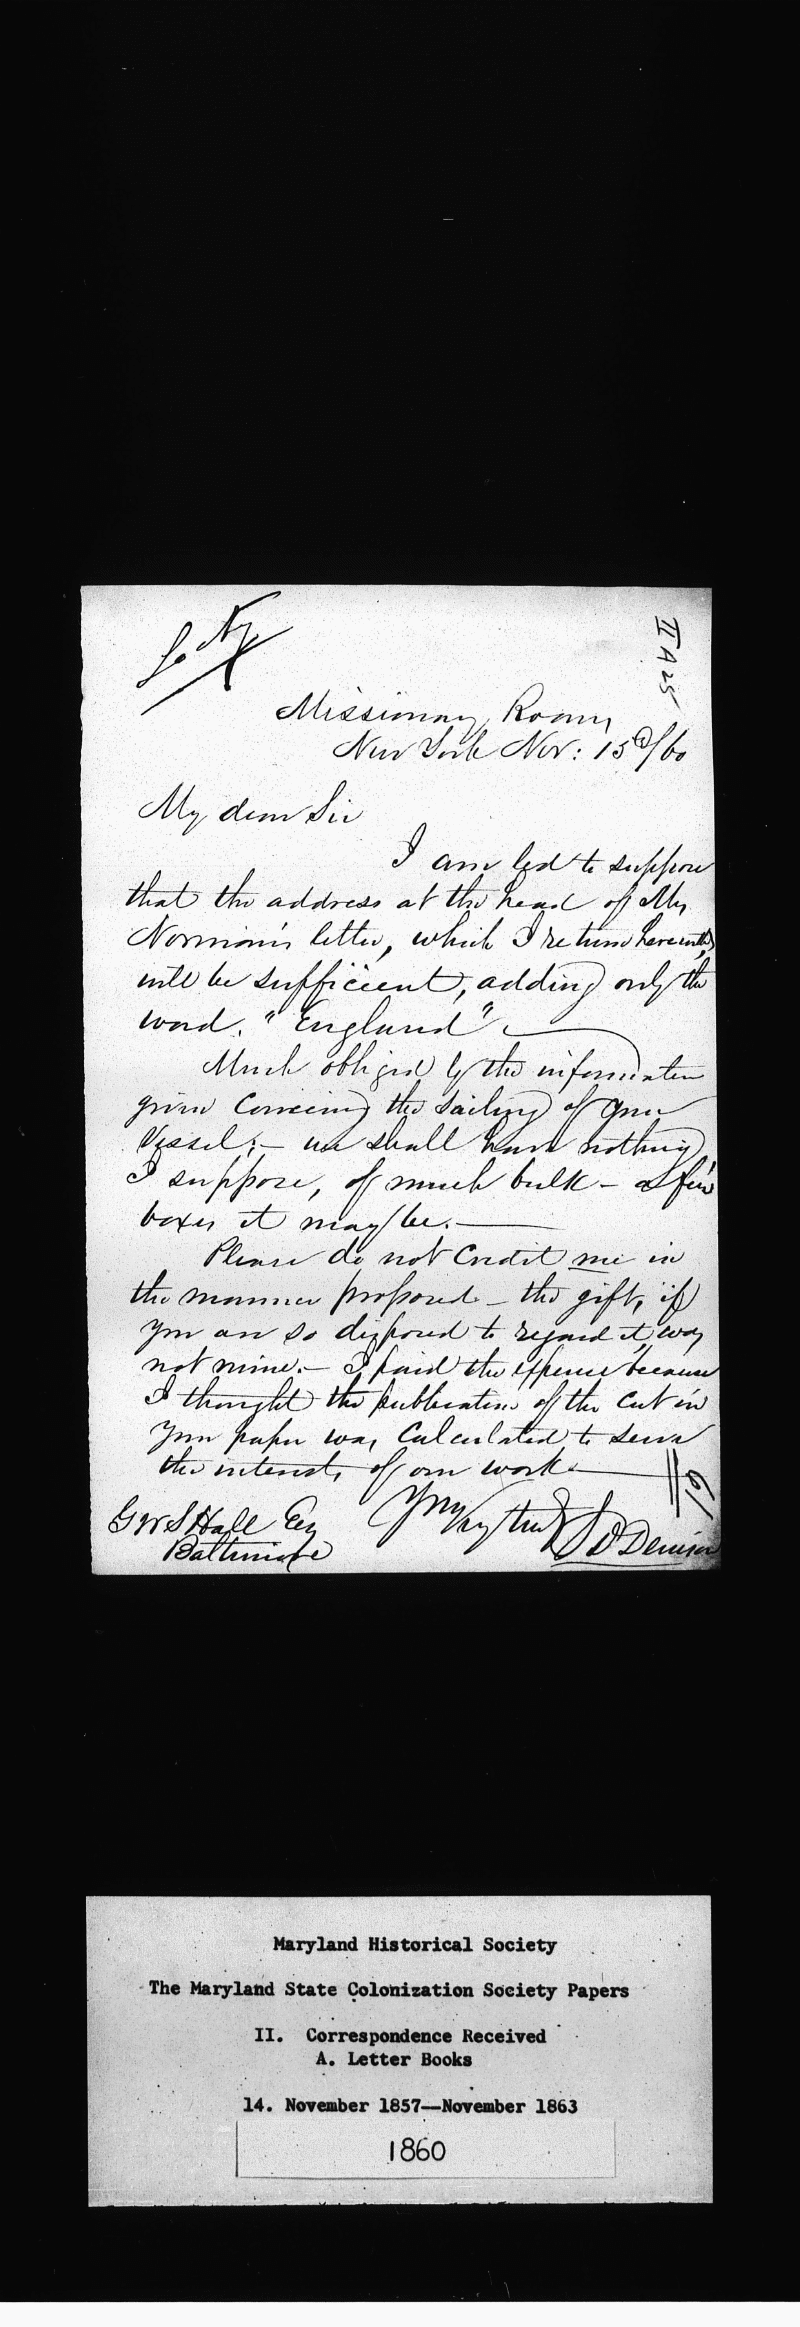 II A 25
Missionary Rooms
New York Nov: 15th/60
My dear Sir
I am led to suppose
that the address at the head of Mr
Norman's letter, which I return herewith,
will be sufficient, adding only the
word. "England"
Much obliged by the information
given concerning the sailing of your
Vessel; – we shall have nothing
I suppose, of much bulk – a few
boxes it may be. –
Please do not credit me in
the manner proposed – the gift, if
you are so disposed to regard it, was
not mine. – I paid the expense because
I thought the publication of the cut in
your paper was calculated to serve
the interests of our work –
Yrs very truly
S D Denison
G W S Hall Esq
Baltimore
Maryland Historical Society
The Maryland State Colonization Society Papers
II. Correspondence Received
A. Letter Books
14. November 1857—November 1863
1860